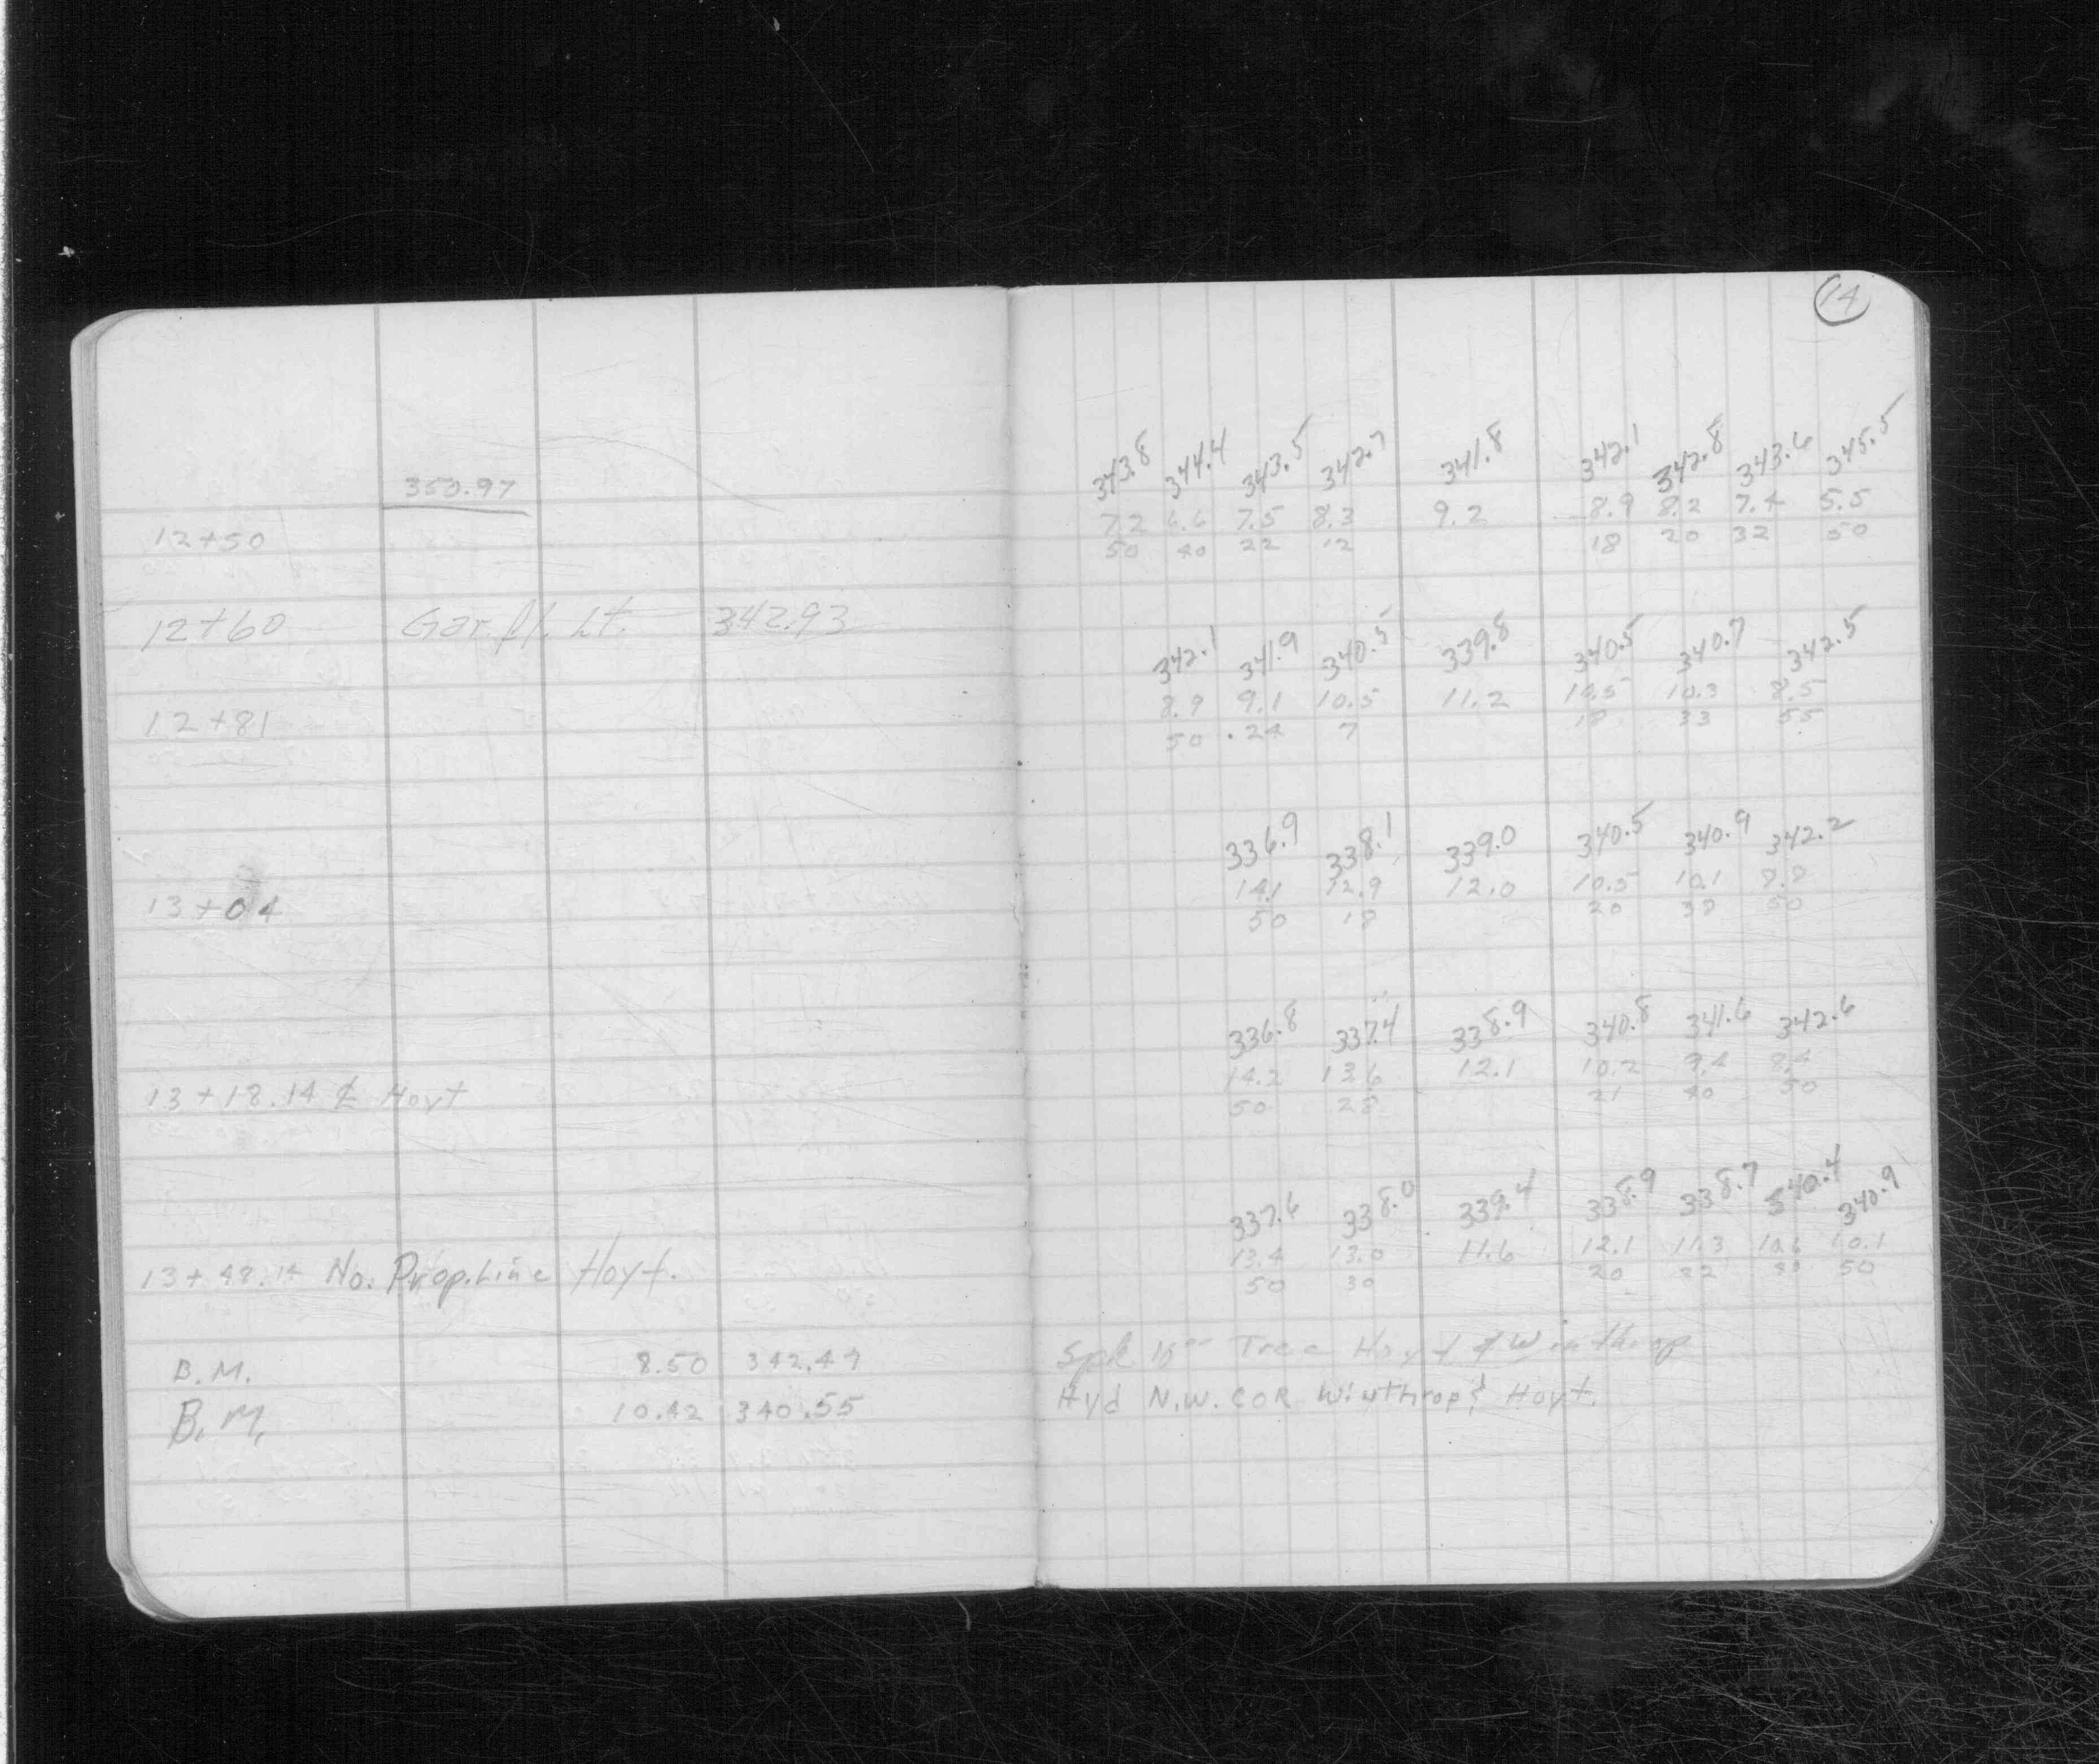 14
350.97
12+50
343.8 344.4 343.5 342.7 341.8 342.1 342.8 343.6 345.5
7.2 6.6 7.5 8.3 9.2 8.9 8.2 7.4 5.5
50 40 22 12 18 20 32 50
12+60 Gar. fl. Lt. 342.93
12+81
342.1 341.9 340.5 339.8 340.5 340.7 342.5
8.9 9.1 10.5 11.2 10.5 10.3 8.5
50 24 7 18 33 55
13+04
336.9 338.1 339.0 340.5 340.9 342.2
14.1 12.9 12.0 10.5 10.1 8.8
50 18 20 38 50
13+18.14 ℄ Hoyt
336.8 337.4 338.9 340.8 341.6 342.6
14.2 13.6 12.1 10.2 9.4 8.4
50 28 21 40 50
13+48.14 No. Prop. Line Hoyt.
337.6 338.0 339.4 338.9 338.7 340.4 340.9
13.4 13.0 11.6 12.1 11.3 10.6 10.1
50 30 20 22 50
B.M. 8.50 342.47
Spk Tree Hoyt & Winthrop
B.M. 10.42 340.55
Hyd N.W. COR Winthrop & Hoyt.